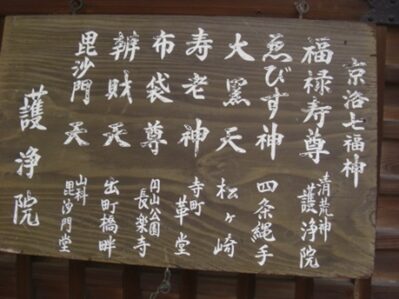 京洛七福神
福禄寿尊 清荒神 護浄院
ゑびす神 四条縄手
大黑天 松ヶ崎
寿老神 寺町 革堂
布袋尊 円山公園 長楽寺
辨財天 出町橋畔
毘沙門天 山科 毘沙門堂
護浄院